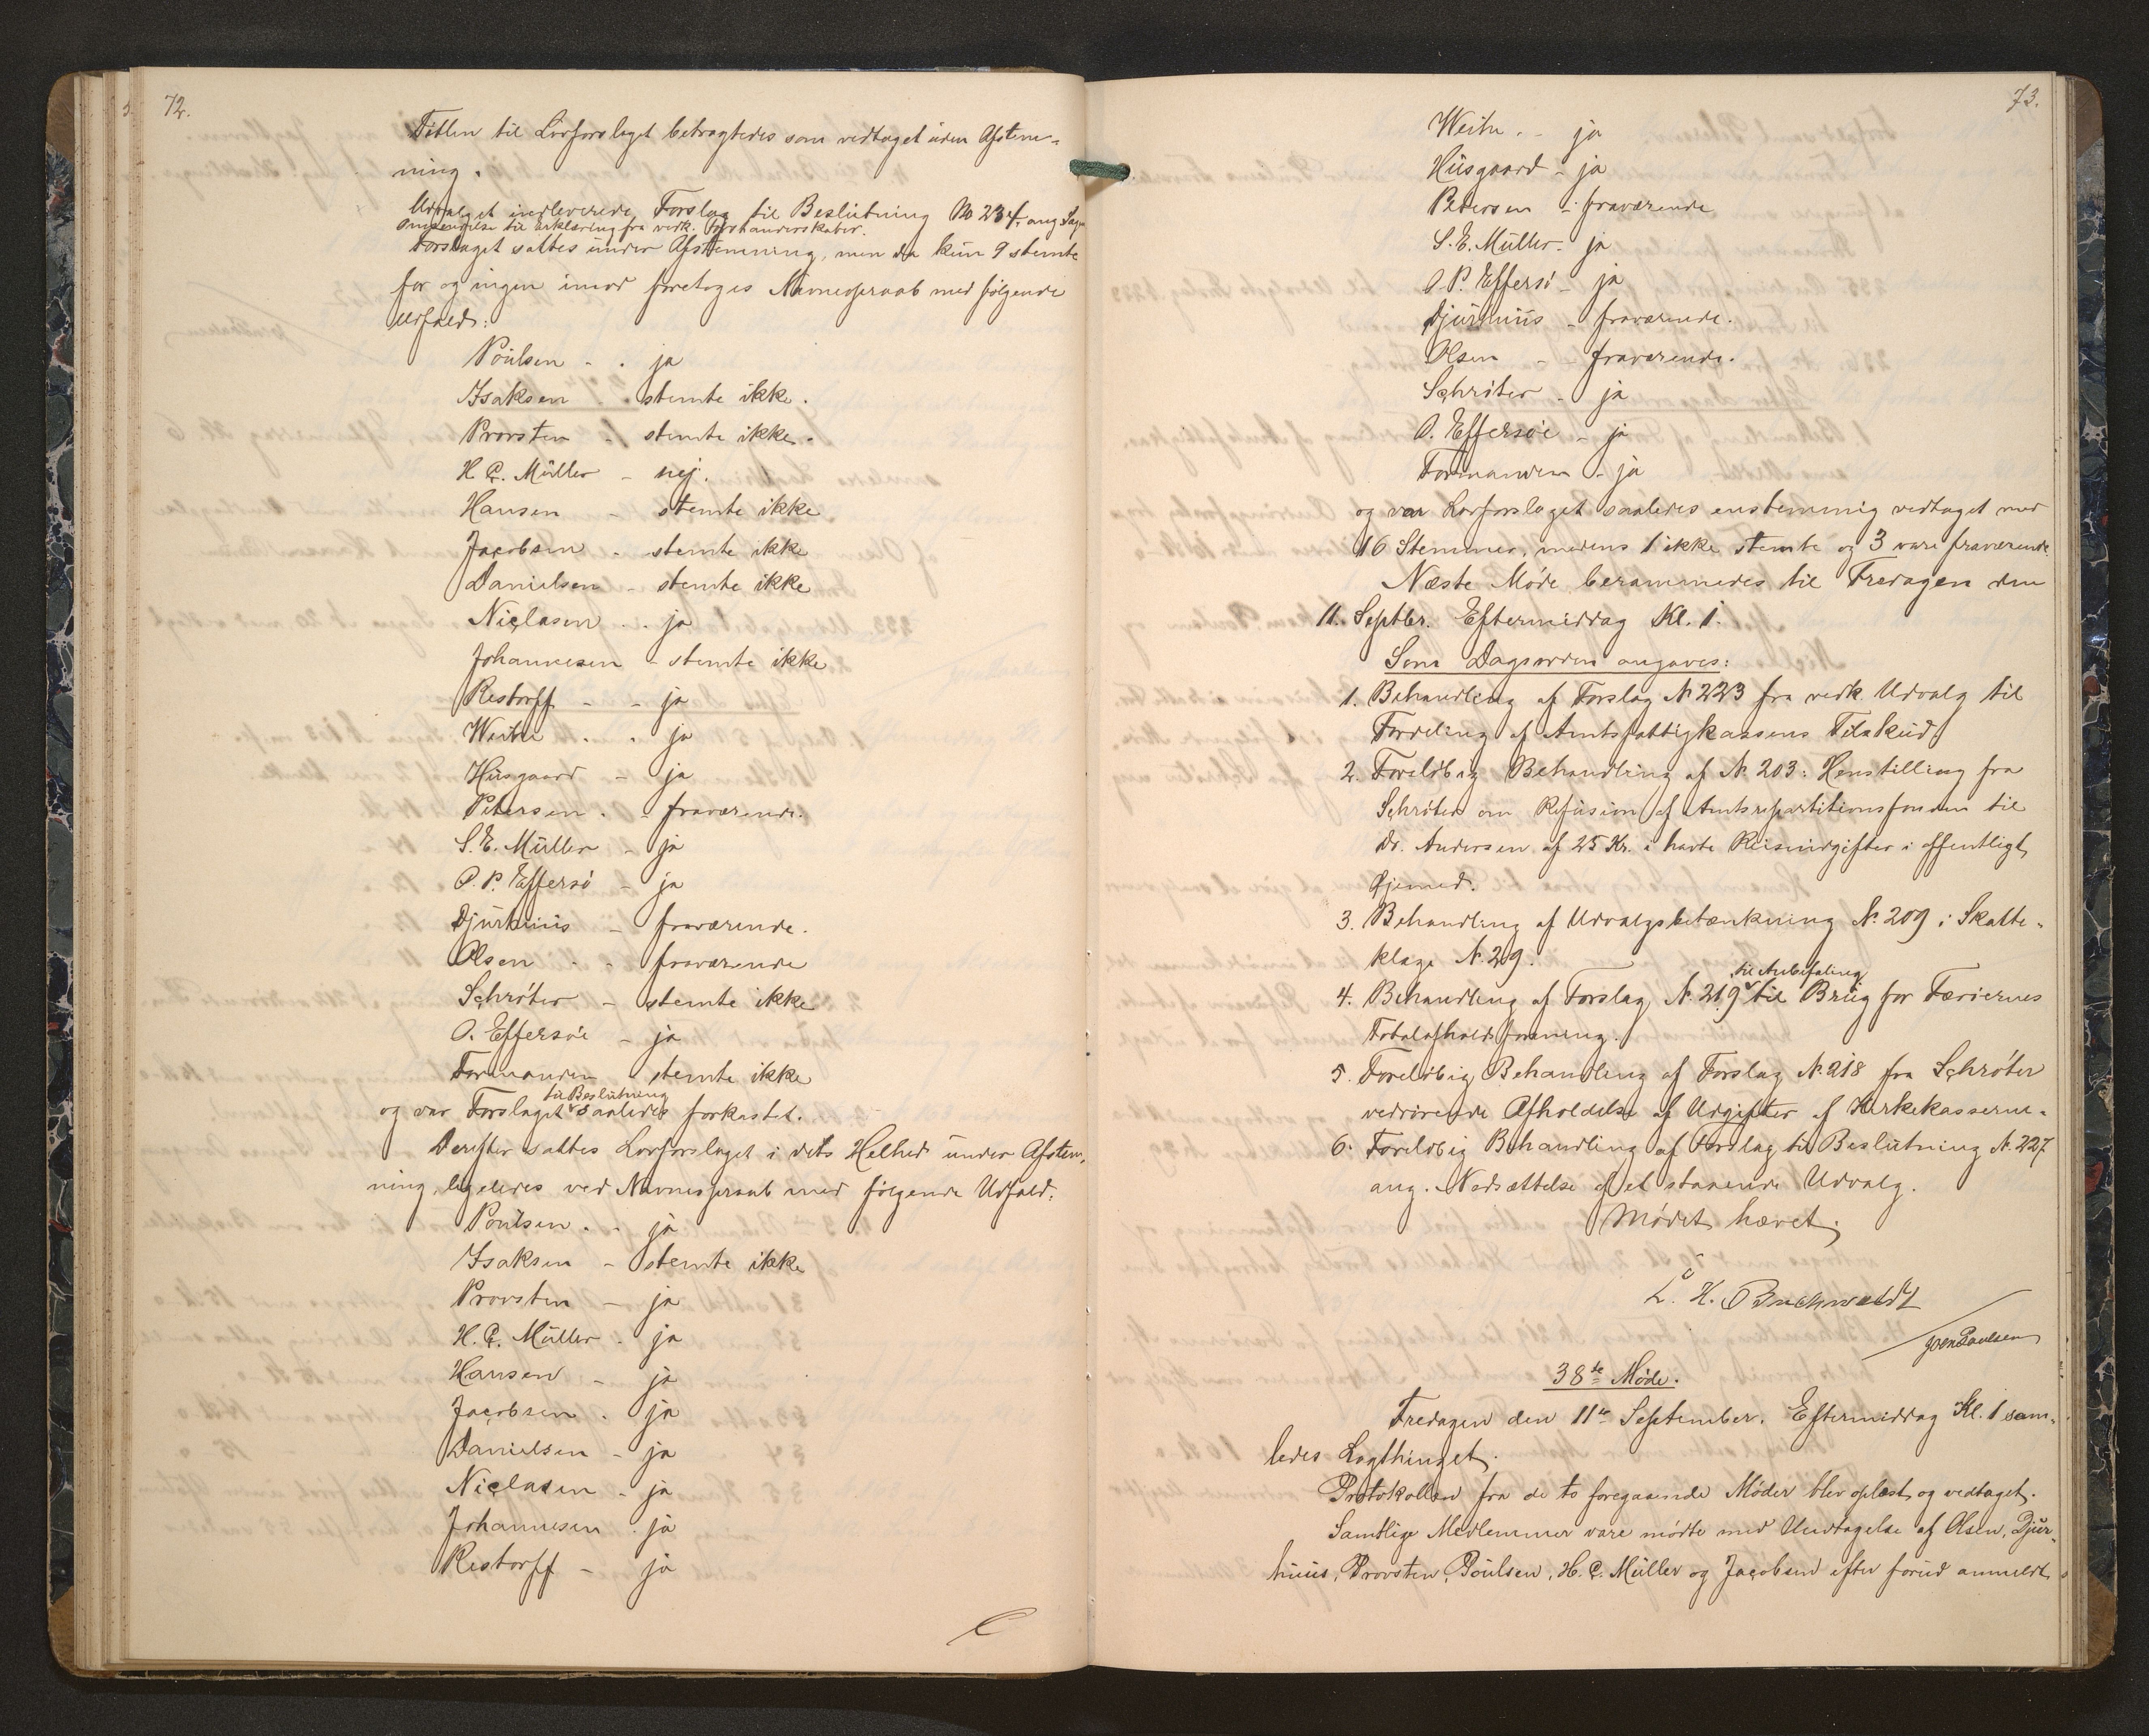 72.
Titlen til Lovforslaget betragtedes som vedtaget uden Afstem-
ning.
Udvalget indleverede Forslag til Beslutning No 234, ang. Sagens
Omsendelse til Erklæring fra vedk. Forstanderskaber.
Forslaget sattes under Afstemning, men da kun 9 stemte
for og ingen imod foretoges Navneopraab med følgende
Udfald:
Poulsen - - ja
Isaksen - stemte ikke.
Provsten - stemte ikke.
H. C. Müller - nej.
Hansen - stemte ikke
Jacobsen - stemte ikke
Danielsen - stemte ikke
Niclasen - - ja
Johannesen - stemte ikke
Restorff - - ja
Weihe - - ja
Husgaard - ja
Petersen - fraværende.
S. E. Müller - ja
O. P. Effersö - ja
Djurhuus - fraværende.
Olsen - - fraværende
Schröter - stemte ikke
O. Effersöe - ja
Formanden - stemte ikke
til Beslutning
og var Forslaget saaledes forkastet.
Derefter sattes Lovforslaget i dets Helhed under Afstem-
ning, ligeledes ved Navneopraab med følgende Udfald:
Poulsen - - ja
Isaksen - stemte ikke
Provsten - ja
H. C. Müller - ja
Hansen - ja
Jacobsen - ja
Danielsen - ja
Niclasen - ja
Johannesen - ja
Restorff - ja
73.
Weihe - - ja
Husgaard - ja
Petersen - fraværende
S. E. Müller - ja
O. P. Effersö - ja
Djurhuus - fraværende.
Olsen - - fraværende.
Schröter - ja
O. Effersöe - ja
Formanden - ja
og var Lovforslaget saaledes enstemmig vedtaget med
16 Stemmer, medens 1 ikke stemte og 3 vare fraværende.
Næste Møde berammedes til Fredagen den
11. Septbr. Eftermiddag Kl. 1.
Som Dagsorden angaves:
1. Behandling af Forslag N. 223 fra vedk. Udvalg til
Fordeling af Amtsfattigkassens Tilskud
2. Foreløbig Behandling af N. 203: Henstilling fra
Schröter om Refusion af Amtsrepartitionsfonden til
Dr. Andersen af 25 Kr. i havte Reiseudgifter i offentligt
Øjemed.
3. Behandling af Udvalgsbetænkning N. 209 i Skatte-
klage N. 29.
til Anbefaling
4. Behandling af Forslag N. 219 til Brug for Færöernes
Totalafholdsforening.
5. Foreløbig Behandling af Forslag N. 218 fra Schröter
vedrörende Afholdelse af Udgifter af Kirkekasserne.
6. Foreløbig Behandling af Forslag til Beslutning N. 227
ang. Nedsættelse af et staaende Udvalg.
Mødet hævet.
C. H. Buchwaldt
Joen Poulsen
38te Møde.
Fredagen den 11te September. Eftermiddag Kl. 1 sam-
ledes Lagthinget.
Protokollen fra de to foregaaende Møder blev oplæst og vedtaget.
Samtlige Medlemmer vare mødte med Undtagelse af Olsen, Djur-
huus, Provsten, Poulsen, H. C. Müller og Jacobsen efter forud anmeldt